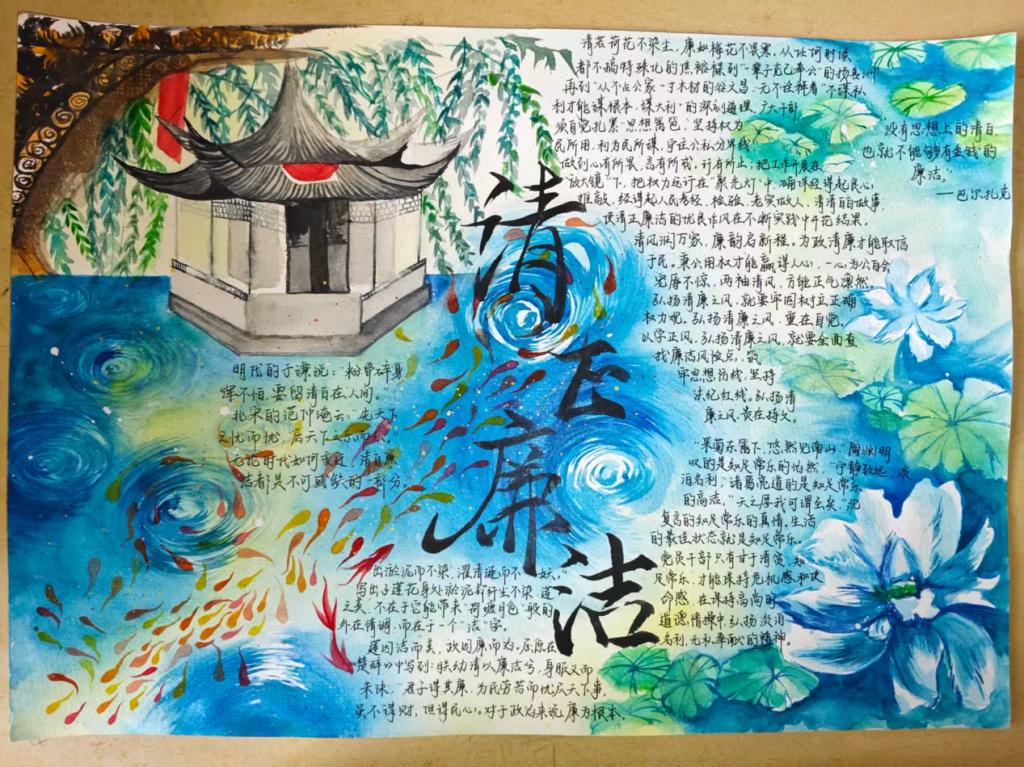 清正廉洁
清若荷花不染尘，廉如梅花不畏寒，从比何时候
都不搞特殊化的焦裕禄到“一辈子克己奉公”的杨善洲
再到“从不占公家一寸木材的谷文昌，无不在释着“不谋私
利才能谋根本、谋大利”的深刻道理，广大干部
须自觉扎紧“思想篱笆，”坚持权为
民所用，利为民所谋，守住公私分界线！
做到心有所畏，言有所戒，行有所止；把工作开展在
“放大镜”下，把权力运行在“聚光灯”中，确保经得起良心
推敲，经得起人民考验、检验，老实做人、清清白白做事，
使清正廉洁的优良作风在不断实践中开花结果。
清风润万家，廉韵启新程。为政清廉才能取信
于民，秉公用权才能赢得人心，一心为公自会
宠辱不惊，两袖清风，方能正气凛然。
弘扬清廉之风，就要牢固树立正确
权力观。弘扬清廉之风，重在自觉。
以学正风，弘扬清廉之风，就要全面查
找廉洁风险点，筑
牢思想防线，坚持
法纪红线。弘扬清
廉之风，贵在持久。
没有思想上的清白，
也就不能够有金钱的
廉洁。”
——巴尔扎克
明代的于谦说：“粉骨碎身
浑不怕，要留清白在人间。”
北宋的范仲淹云：“先天下
之忧而忧，后天下之乐而乐。”
无论时代如何变迁，清白廉
洁都是不可或缺的一部分。
“采菊东篱下，悠然见南山”陶渊明
叹的是知足常乐的怡然，“宁静致远，淡
泊名利，诸葛亮道的是知足常乐
的高洁，“天之厚我可谓至矣，”
复言的知足常乐的真情。生活
的最佳状态就是知足常乐。
党员干部只有甘于清贫、知
足常乐，才能保持危机感和使
命感，在保持高尚的
道德情操中，弘扬淡泊
名利，无私奉献的精神。
“出淤泥而不染，濯清涟而不妖。”
写出了莲花身处淤泥却纤尘不染，莲
之美，不在于它能带来“荷塘月色”般的
外在情调，而在于一个“洁”字。
莲因洁而美，政因廉而为。屈原在
《楚辞》中写到：“朕幼清以廉洁兮，身服义而
未沬，”“君子得其廉，为民劳苦而忧瓜天下事，
虽不得财，但得民心。对于政治来说，廉为根本。